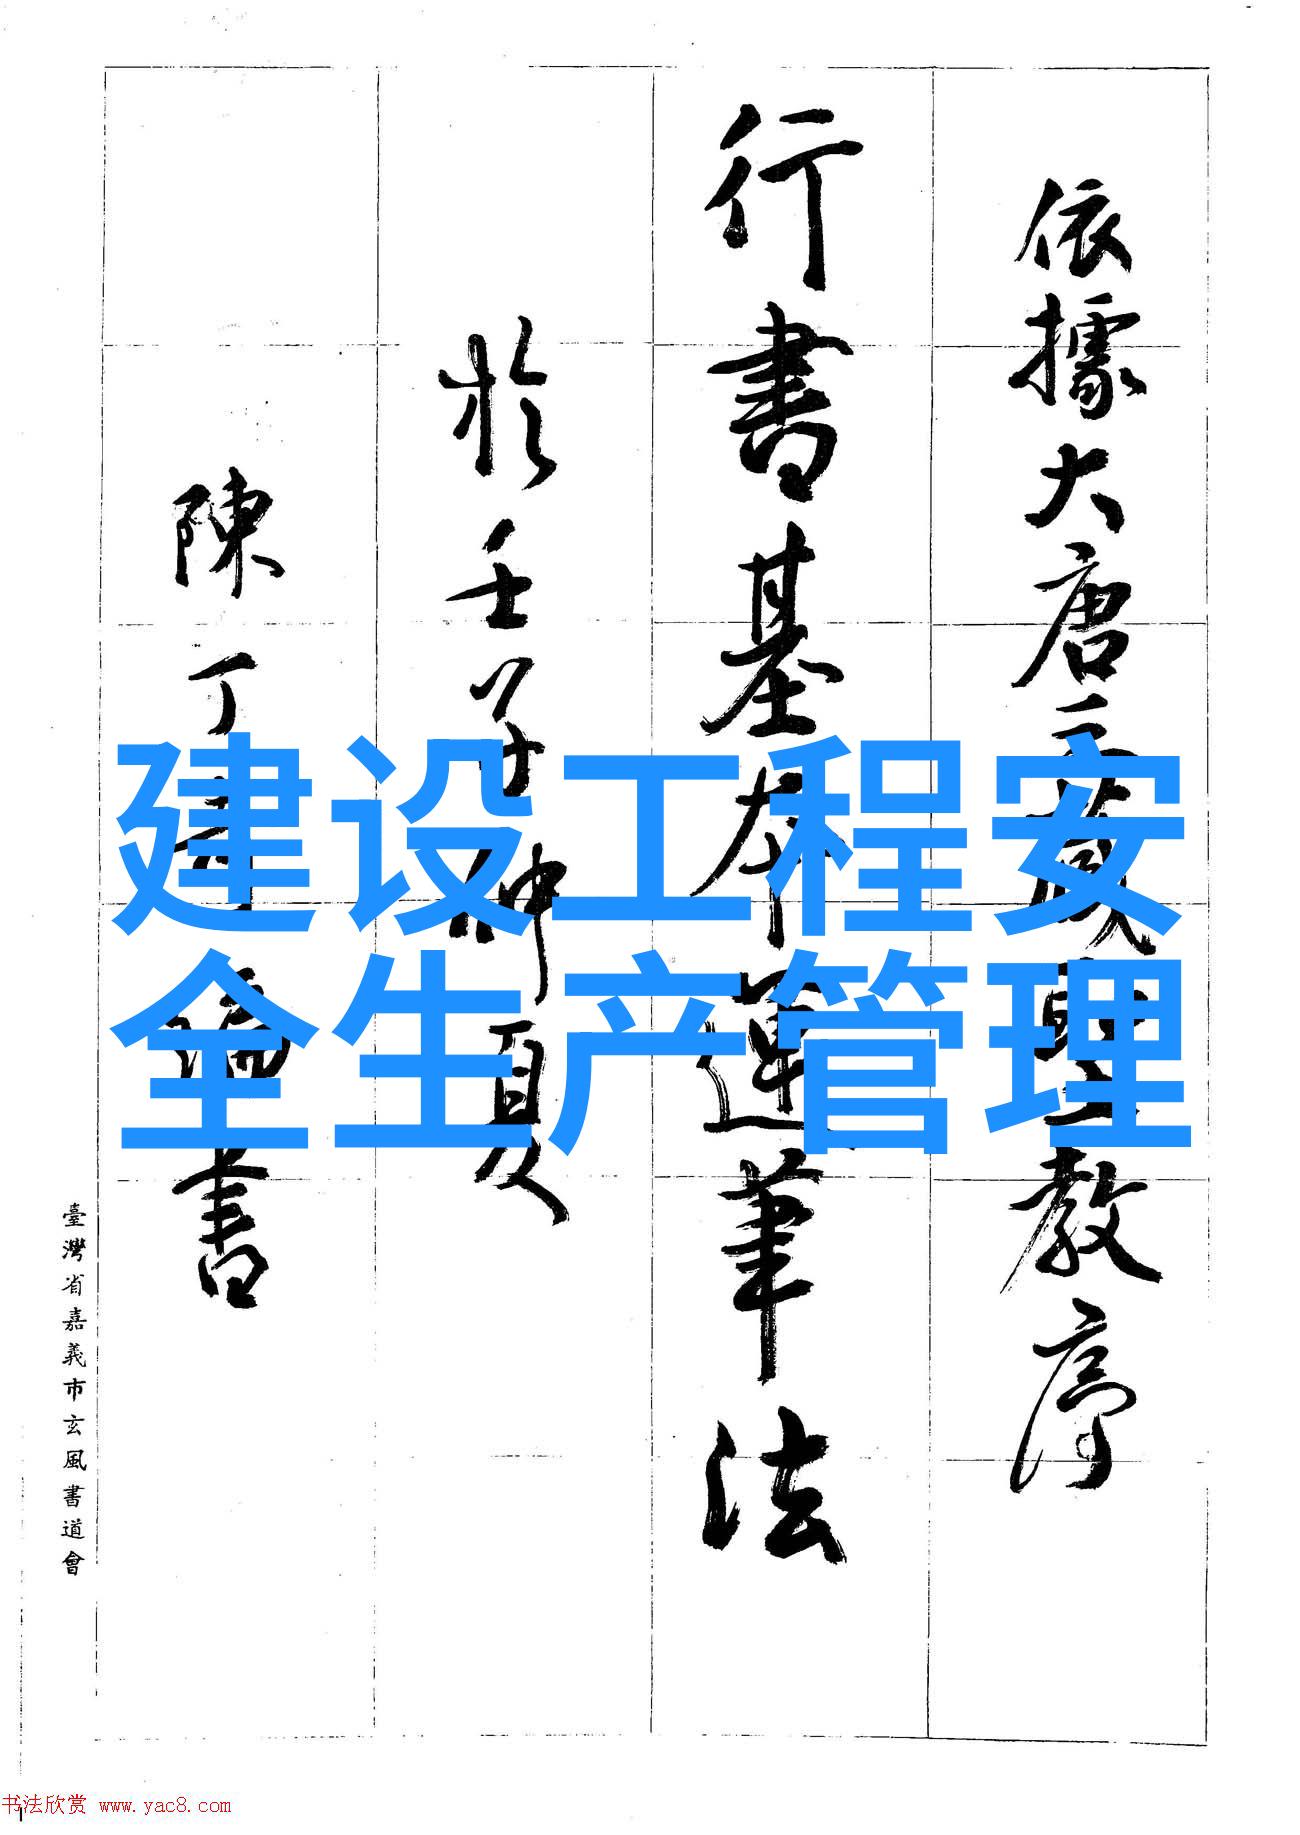 依據大唐三藏聖教序
行書基本運筆法
於壬子仲夏
陳丁書
臺灣省嘉義市玄風書道會
建设工程安
全生产管理
书法欣赏 www.yac8.com